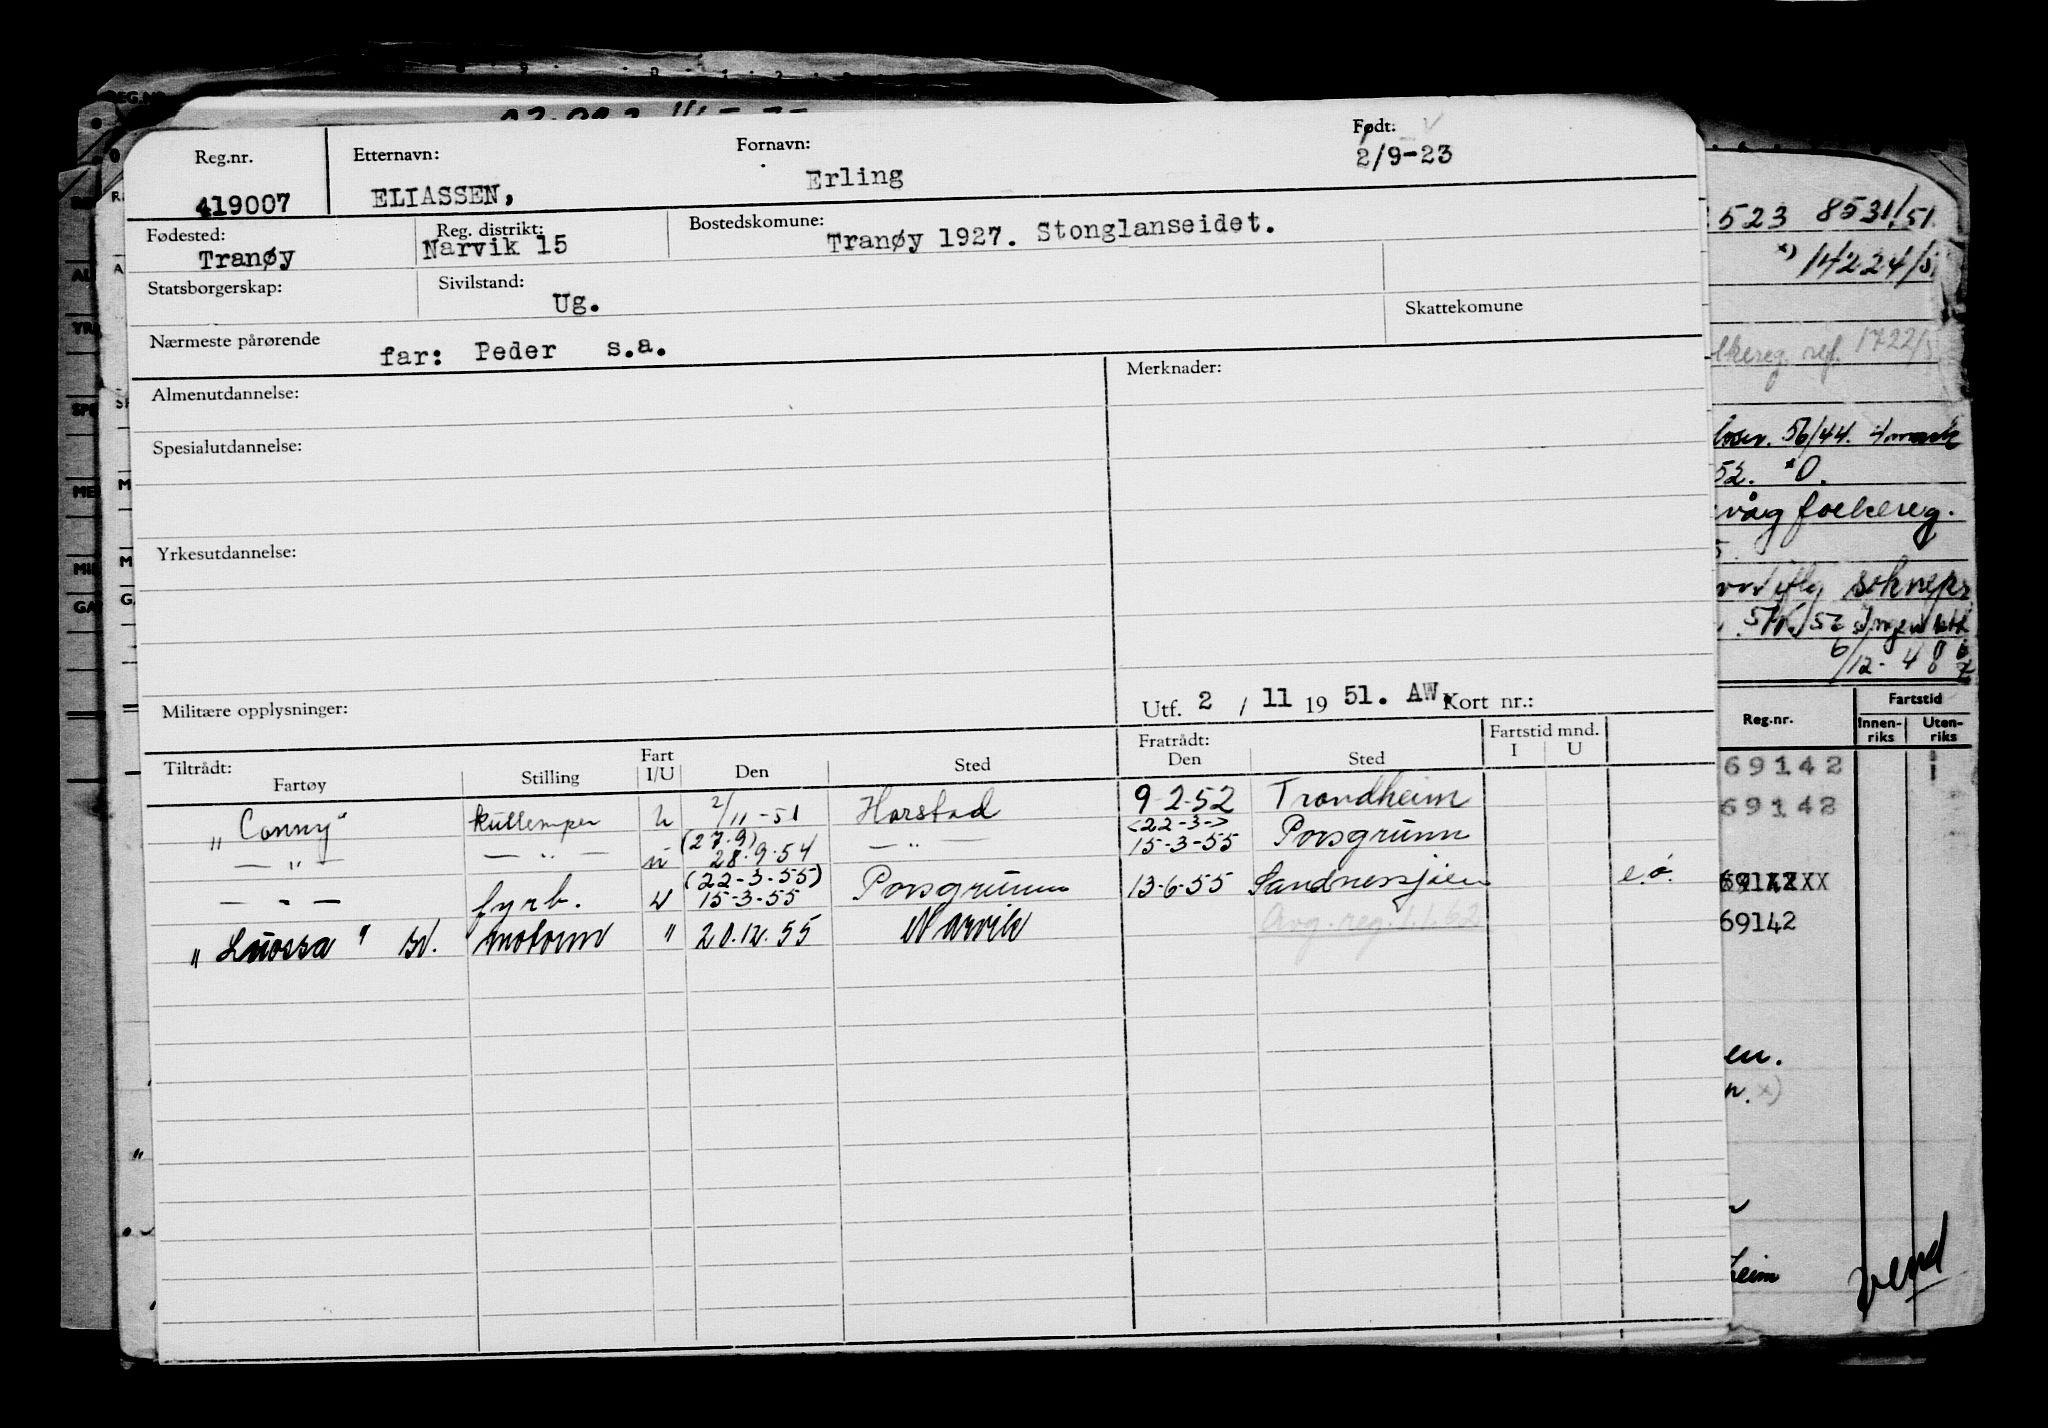 Reg.nr. Etternavn: Fornavn: Født:
419007 ELIASSEN, Erling 2/9-23
Fødested: Reg. distrikt: Bostedskomune:
Tranøy Narvik 15 Tranøy 1927. Stonglanseidet.
Statsborgerskap: Sivilstand: Skattekomune
Ug.
Nærmeste pårørende
far: Peder s.a.
Almenutdannelse: Merknader:
Spesialutdannelse:
Yrkesutdannelse:
Militære opplysninger: Utf. 2 / 11 19 51. AW. Kort nr.:
Tiltrådt: Fart Fratrådt: Fartstid mnd.
Fartøy Stilling I/U Den Sted Den Sted I U
"Conny" kullemper u 2/11-51 Harstad 9-2-52 Trondheim
(27.9) <22-3->
— " — — " — u 28.9.54 — " — 15-3-55 Porsgrunn
(22-3-55)
— " — fyrb. u 15-3-55 Porsgrunn 13-6-55 Sandnessjøen e.ø.
"Luossa" motorm " 20.12.55 Narvik Avg. reg. 1.1.62
523 8531/51.
x) 14224/51
ref. 1722/
56/44.
52. *O.
våg folkereg.
6/12-48
Reg.nr. Fartstid
Innen-riks Uten-riks
69142
69142
69142
en.
n. x)
heim
vend